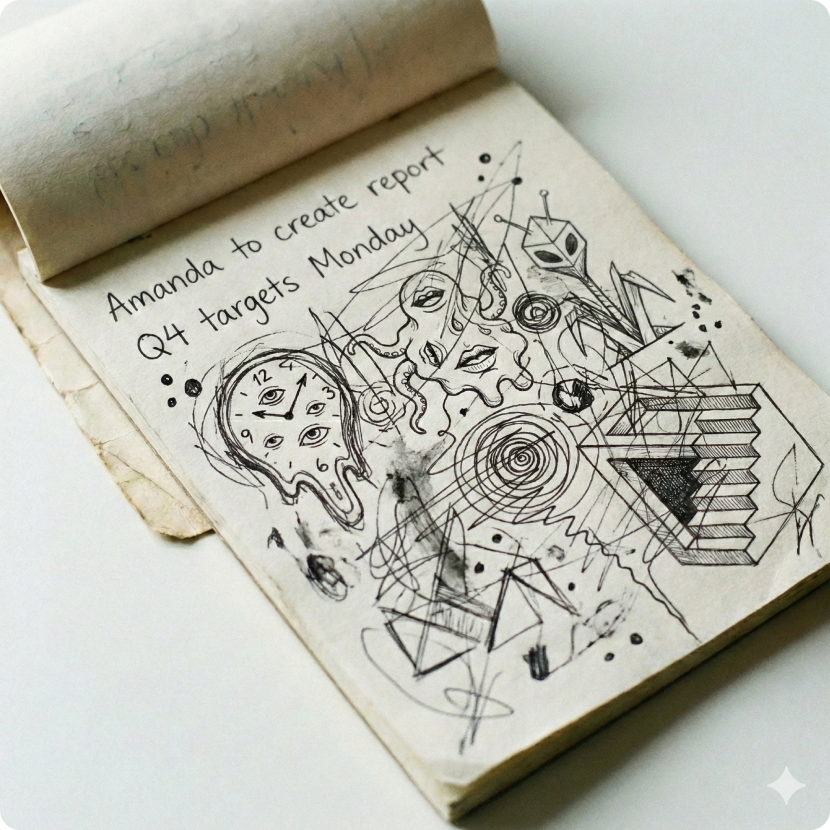 Amanda to create report
Q4 targets Monday
12
3
9
6